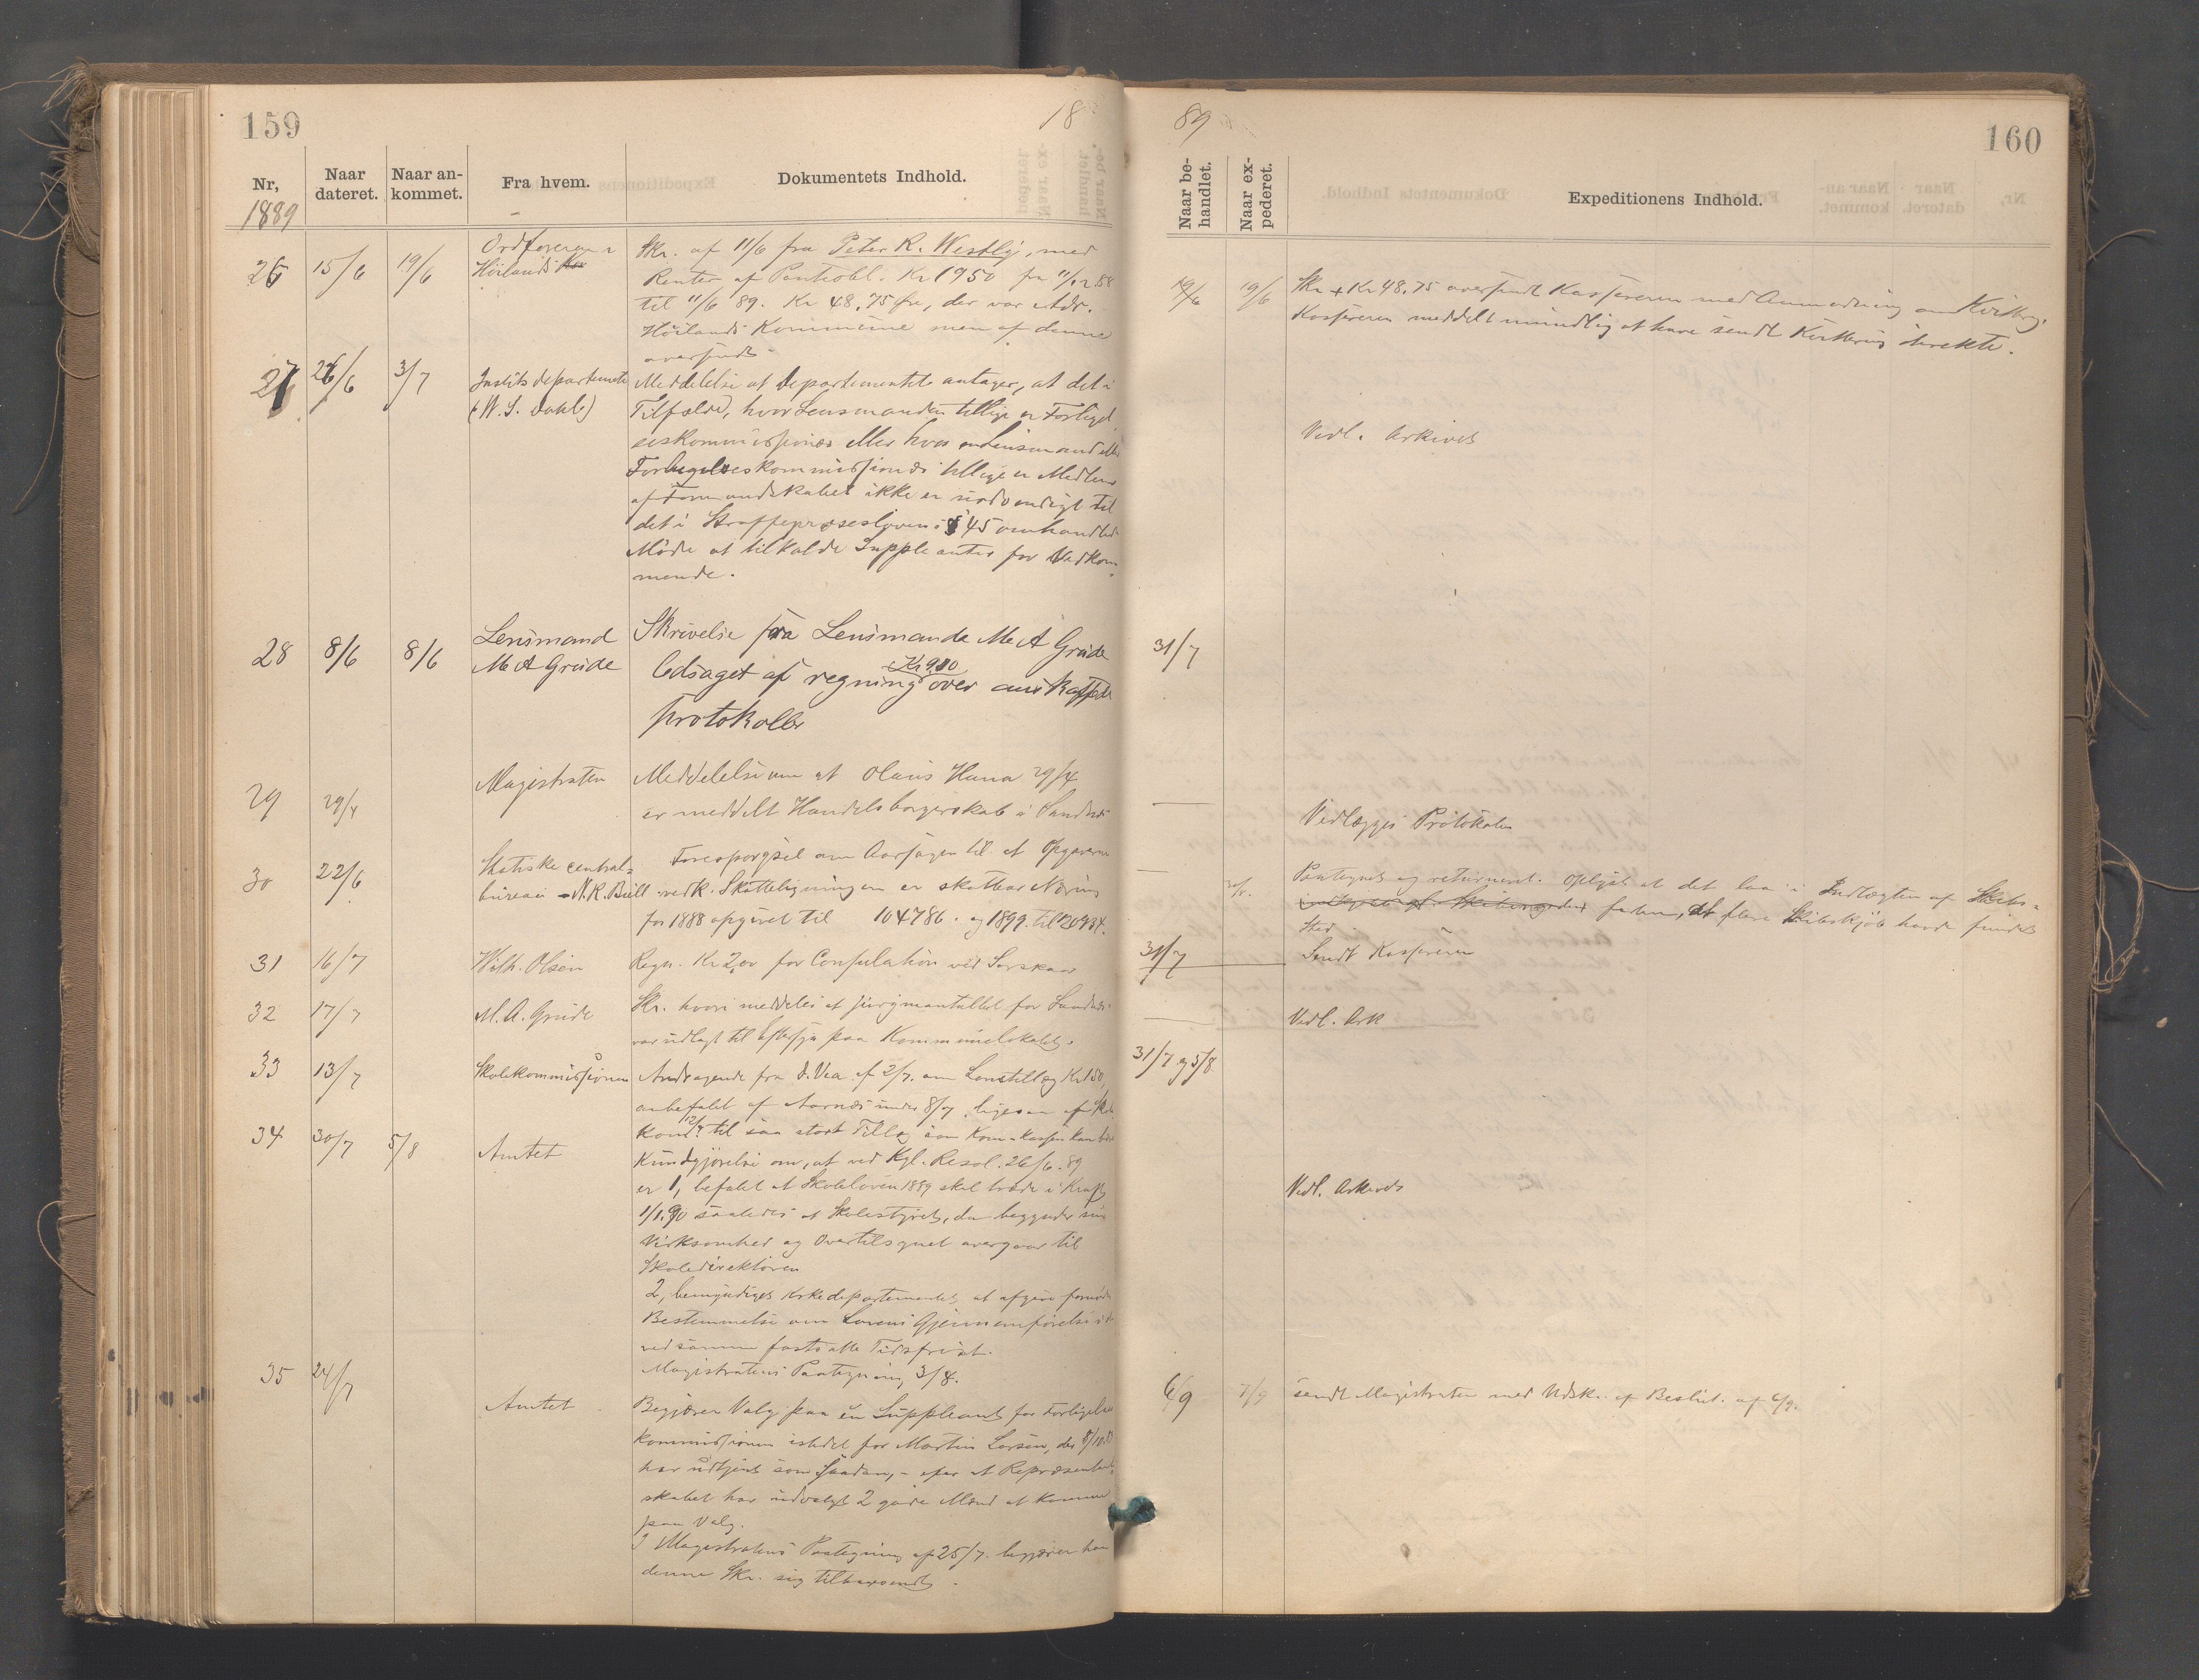 159
18
Nr,
Naar dateret.
Naar ankommet.
Fra hvem.
Dokumentets Indhold.
1889
26 15/6 19/6 Ordføreren i
Høilands
Skr. af 11/6 fra Peter R. Westly, med
Renter af Pantobl. Kr 1950 fra 11/12 88
til 11/6 89. Kr 48,75 øre, der var Adr.
Høilands Kommune men af denne
oversendt
27 26/6 3/7 Justitsdepartementet
Meddelelse at Departementet antager, at det i
Tilfælde, hvor Lensmanden tillige er Forligel
seskommissionær eller hvor en Lensmand eller
Forligelseskommissionær tillige er Medlem
af Formandskabet ikke er nødvendigt til
det i Straffeprosesloven § 45 omhandlede
Møde at tilkalde Suppleanter for Vedkom
mende.
28 8/6 8/6 Lensmand
M A Grude
Skrivelse fra Lensmande M A Grude
ledsaget af regning Kr 9.10 over anskaffede
protokoller
29 29/4 Magistraten
Meddelelse om at Olaus Hana 29/4
er meddelt Handelsborgerskab i Sandnes
30 22/6 Statiske central=
bureau - N.R. Bull
Forespørgsel om Aarsagen til at Opgaverne
vedk. Skatteligningen er skattbar Næring
for 1888 opgivet til 104786. og
31 16/7 Wilh. Olsen
Regn. Kr 2,00 for Consulation ved
32 17/7 M. A. Grude
Skr. hvori meddeles at Jurymantallet for Sandnes
var udlagt til Eftersyn paa Kommunelokalet.
33 13/7 Skolekommissionen
Andragende fra af 2/7. om Lønstillæg Kr 150,
anbefalet af under 8/7, ligesom af Skole
kom. 12/7 til saa stort Tillæg som Kom-Kassen kan
34 30/7 5/8 Amtet
Kundgjørelse om, at ved Kgl. Resol. 26/6. 89
er 1, befalet at Skoleloven 1889 skal træde i Kraft
1/1.90 saaledes at Skolestyret, da begynder sin
Virksomhed og Overtilsynet overgaar til
Skoledirektøren
2, bemyndiges Kirkedepartementet, at afgive fornøden
Bestemmelse om Lovens Gjennemførelse i
ved samme fastsatte Tidsfrist.
Magistratens Paategning 3/8.
35 24/7 Amtet
Begjærer Valg paa en Suppleant for Forligelses
kommissionen istedet for Martin Larsen, der
har udtjent som saadan, - efter at Repræsentant
skabet har udvalgt 2 gode Mænd at komme
paa Valg.
I Magistratens Paategning af 25/7. begjærer han
denne Skr. sig tilbagesendt.
89
160
Naar behandlet.
Naar expederet.
Expeditionens Indhold.
19/6 19/6 Skr + Kr 48.75 oversendt Kassereren med Anmodning om Kvitterg.
Kassereren meddelt mundtlig at have sendt Kvittering direkte.
Vedl. Arkivet
31/7
Vedlægges Protokolen
Paategnet og returneret. Oplyst at det laa i Indtægten af Skibs=
at flere Skibskjøb havde fundet
Sted
31/7 Sendt Kassereren
Vedl. Ark
31/7 og 5/8
Vedl. Arkivet
6/9 7/9 sendt Magistraten med Udskr. af Beslut. af 6/9.